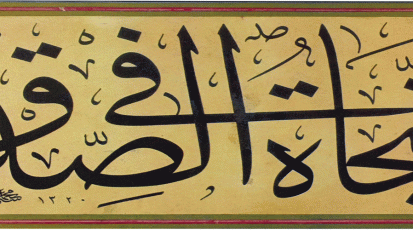 نجاة في الصدق
١٣٢٠